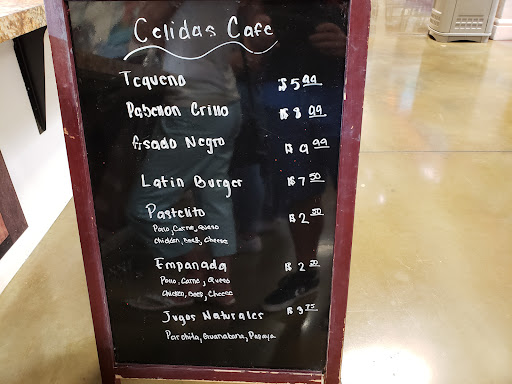 Celidas Cafe
Tequeno $5.99
Pabellon Crillo $8.99
Asado Negro $9.99
Latin Burger $7.50
Pastelito $2.50
Pollo, Carne, Queso
Chicken, Beef, Cheese
Empanada $2.50
Pollo, Carne, Queso
Chicken, Beef, Cheese
Jugos Naturales
Parchita, Guanabana, Papaya